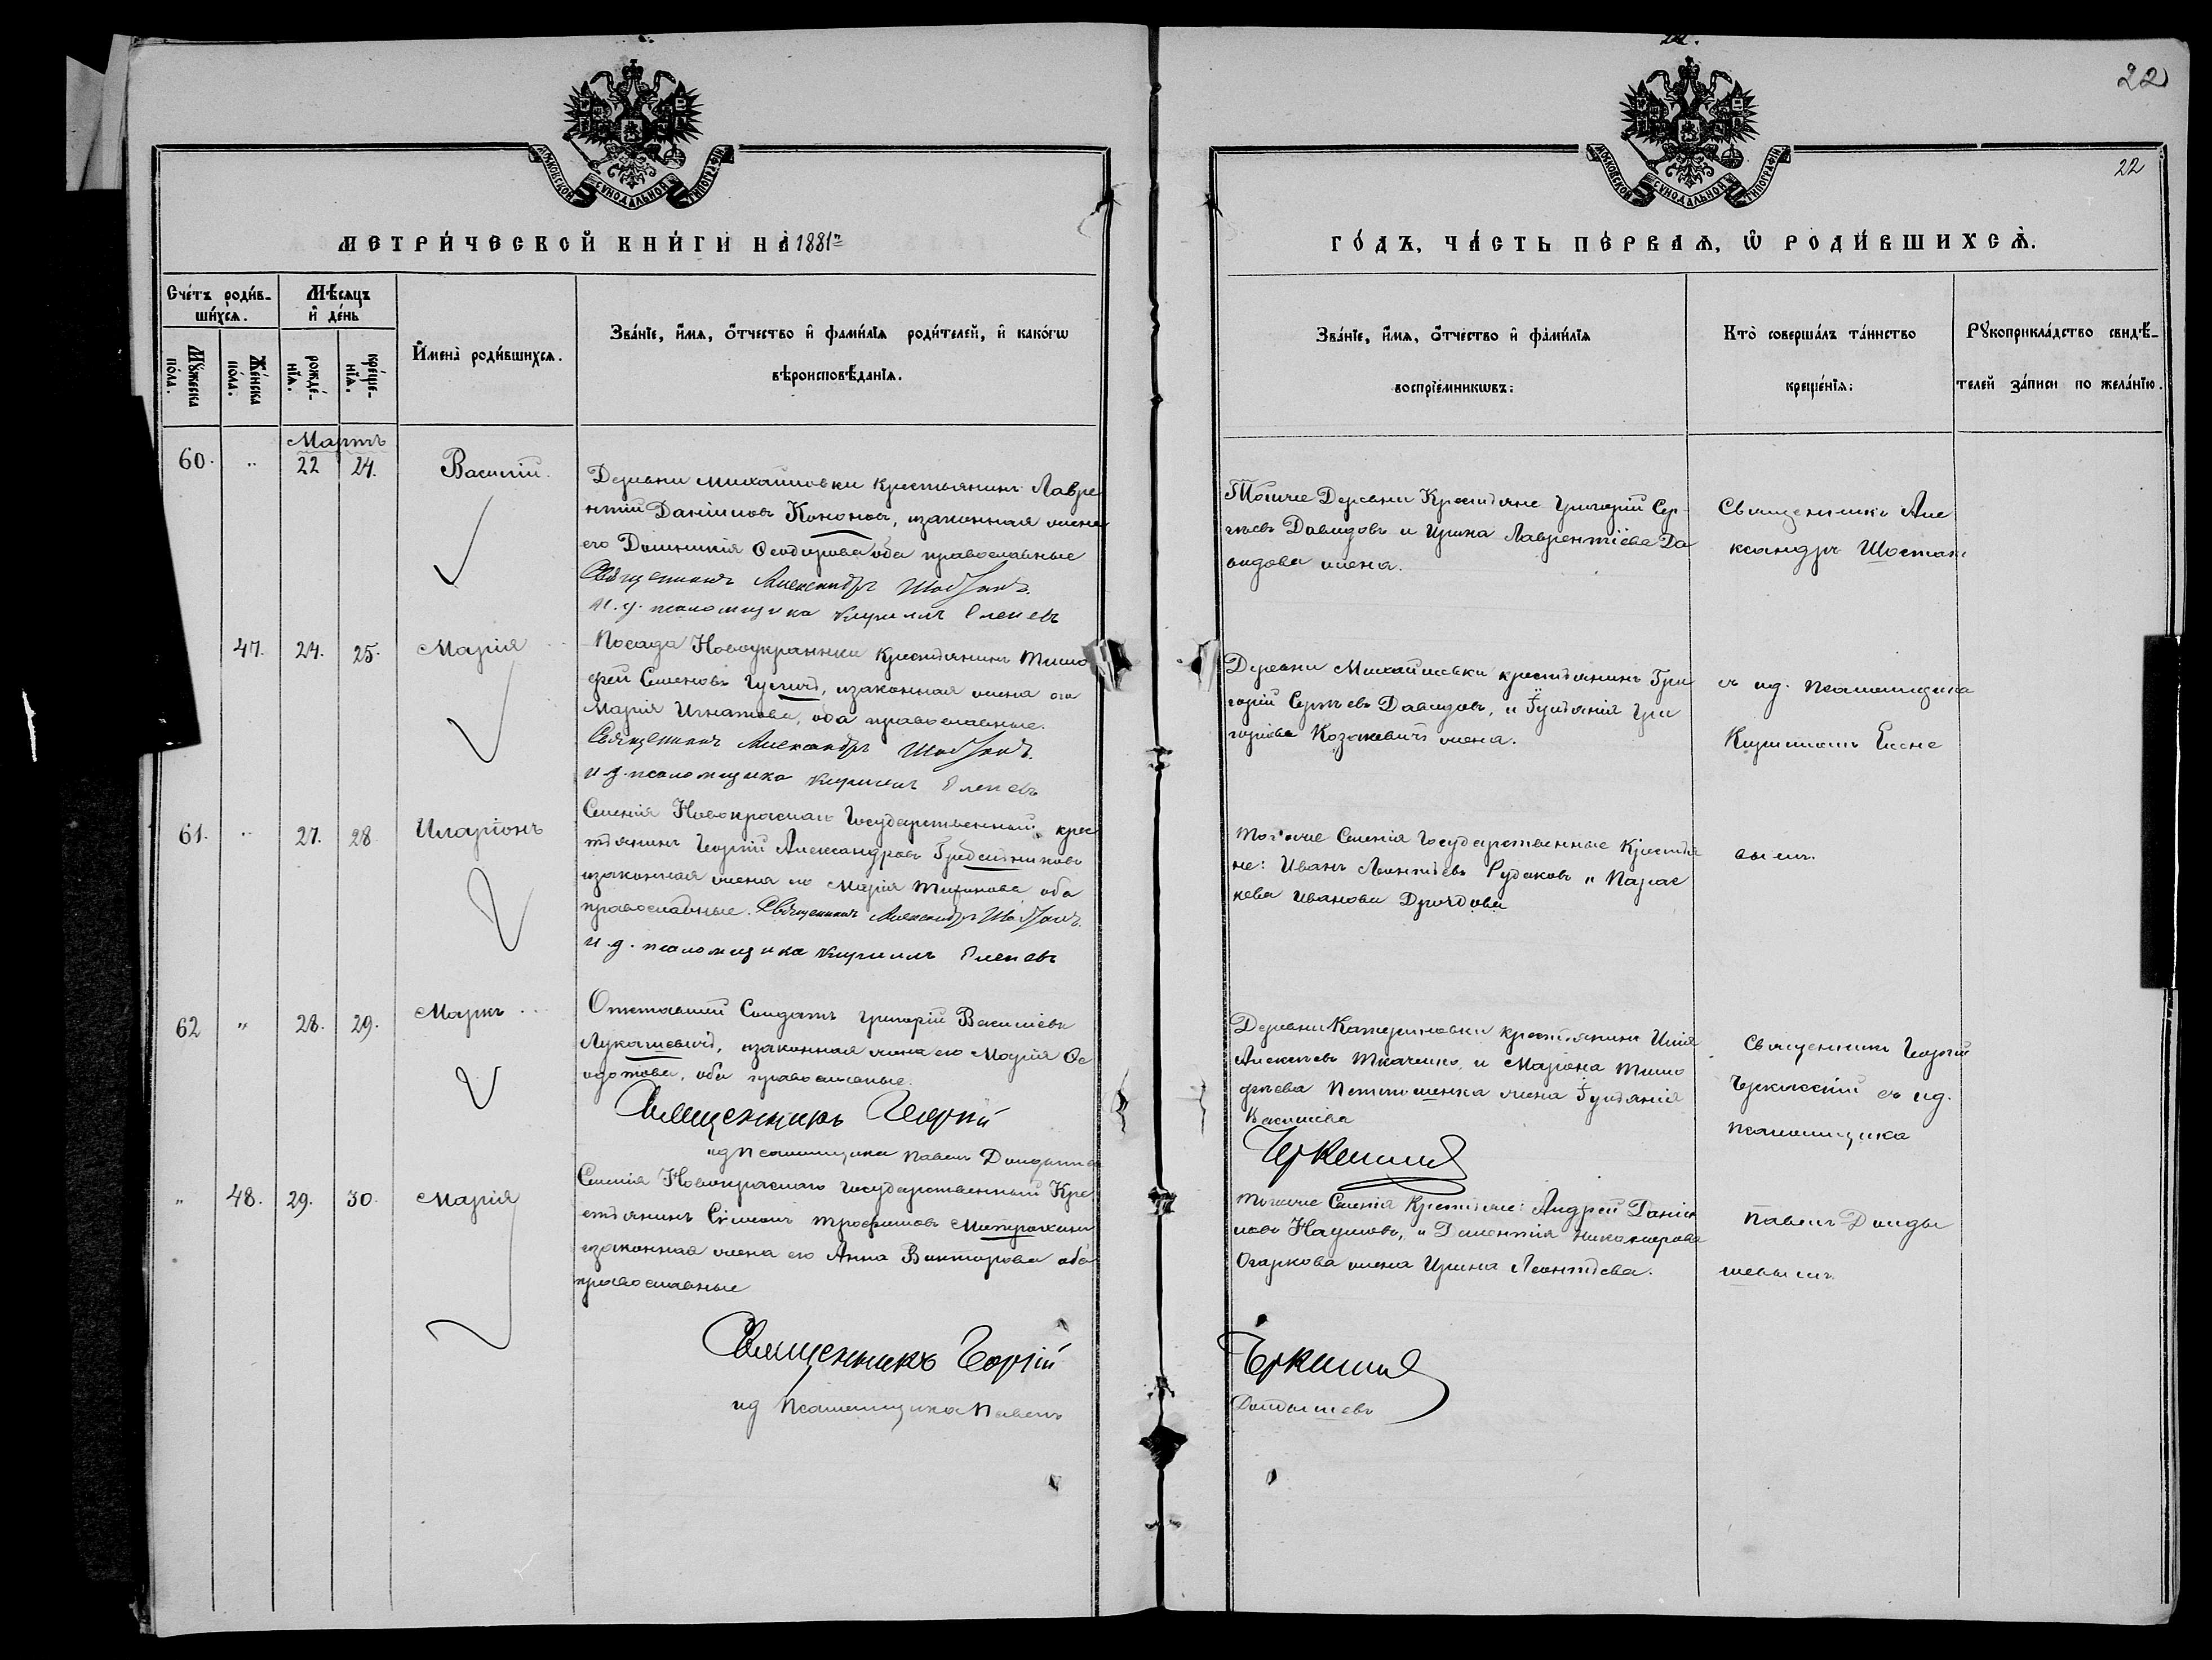 22
22
МОСКОВСКОЙ СѴНОДАЛЬНОЙ ТИПОГРАФІИ
МОСКОВСКОЙ СѴНОДАЛЬНОЙ ТИПОГРАФІИ
МЕТРИ́ЧЕСКОЙ КНИ́ГИ НА̀ 1881й
ГО́ДЪ, ЧА́СТЬ ПЕ́РВАЯ, Ѽ РОДИ́ВШИХСЯ.
Сче́тъ роди́в-
ши́хся.
Мѣ́сяцъ
и҆ де́нь
Мꙋ́жеска по́ла.
Же́нска по́ла.
рожде́-нїѧ.
креще́-нїѧ.
И҆мена̀ роди́вшихся.
Зва́нїе, и҆́мя, ѻ҆́тчество и҆ фами́лїя роди́телей, и҆ како́гѡ
вѣроисповѣ́данїя.
Зва́нїе, и҆́мя, ѻ҆́тчество и҆ фами́лїя
воспрїе́мникѡвъ:
Кто̀ соверша́лъ та́инство
креще́нїя:
Рꙋкоприкла́дство свидѣ́-
телей за́писи по жела́нїю.
Мартъ
60. " 22 24. Василій.
Деревни Михайловки крестьянинъ Лавре
нтій Даніиловъ Кононовъ, изаконная жена
его Домникія Ѳеодорова оба православные
Священникъ Александръ Шостакъ.
и. д. псаломщика Кириллъ Еленевъ
Тойже Деревни Крестьяне Григорій Сер-
гѣевъ Давидовъ и Ирина Лаврентіева Да
видова жена.
Священникъ Але
ксандръ Шостакъ
47. 24. 25. Марія
Посада Новоукраинки Крестьянинъ Тимо
фей Семеновъ, изаконная жена его
Марія Игнатова, оба православные.
Священникъ Александръ Шостакъ.
и. д. псаломщика Кириллъ Еленевъ
Деревни Михайловки крестьянинъ Гри
горій Сергѣевъ Давидовъ, и Іуліанія Гри
горіева Козакевичъ жена.
съ ид. псаломщика
Кирилломъ Елене
61. " 27. 28 Иларіонъ
Селенія Новокраснаго Государственный крес
тьянинъ Георгій Александровъ Гребенниковъ
изаконная жена его Марія оба
православные. Священникъ Александръ Шостакъ.
и. д. псаломщика Кириллъ Еленевъ
Тогоже Селенія Государственные Крестья
не: Иванъ Леонтьевъ Рудаковъ и Парас
кева Иванова Дроздова
вымъ.
62 " 28. 29. Маркъ
Отставной Солдатъ Григорій Васильевъ
Лукашевичъ, изаконная жена его Марія Ѳе
одотова, оба православные.
Священникъ Георгій
ид псаломщика Павелъ
Деревни Катериновки крестьянинъ Илія
Алексѣевъ Ткаченко, и Маріона Тимо
фѣева жена Іуліанія
Васильева
Черкасскій
Священникъ Георгій
Черкасскій съ ид.
псаломщика
" 48. 29. 30. Марія
Селенія Новокраснаго Государственный Кре
стьянинъ Сѵмеонъ Трофимовъ Митрохинъ
изаконная жена его Анна Викторова оба
православные
Священникъ Георгій
ид псаломщика Павелъ
Тогоже Селенія Крестьяне: Андрей Даніи
ловъ Наумовъ, и Дементія Никанорова
Огаркова жена Ирина Леонтьева.
Черкасскій
Долдышевъ
Павелъ Долды
шевымъ.